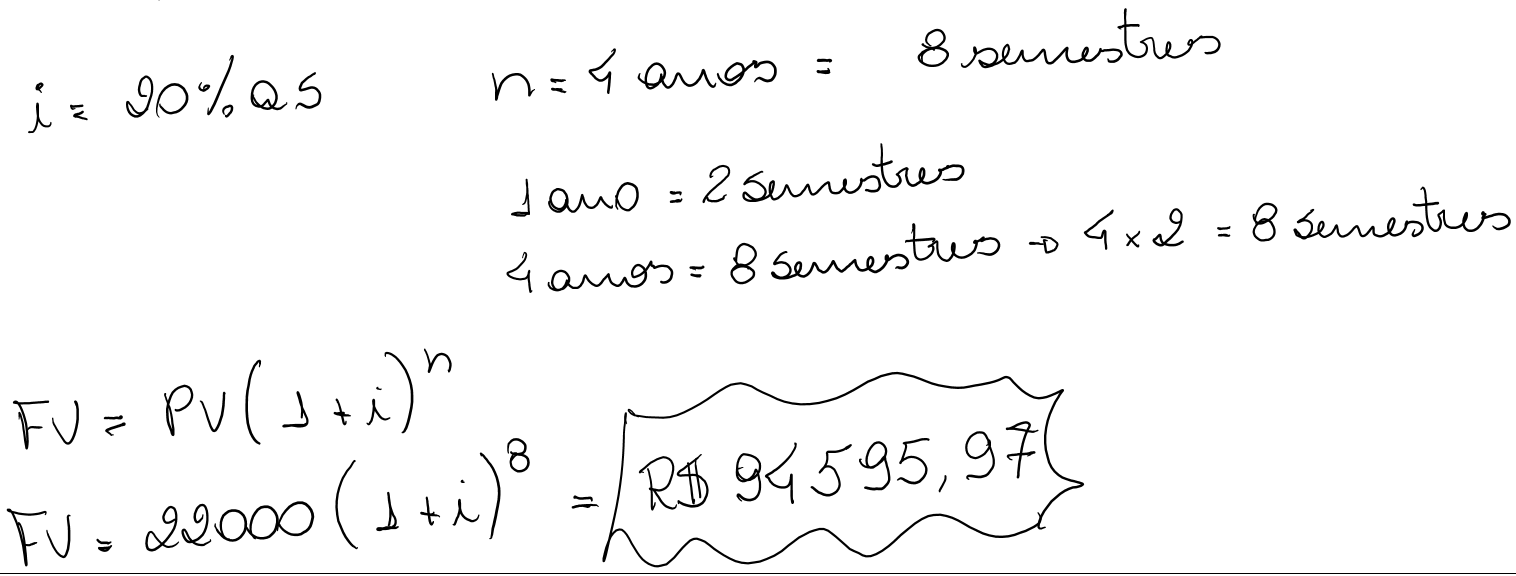 i = 20% as n = 4 anos = 8 semestres
1 ano = 2 semestres
4 anos = 8 semestres → 4 x 2 = 8 semestres
FV = PV(1 + i)^n
FV = 22000(1 + i)^8 = R$ 94595,97